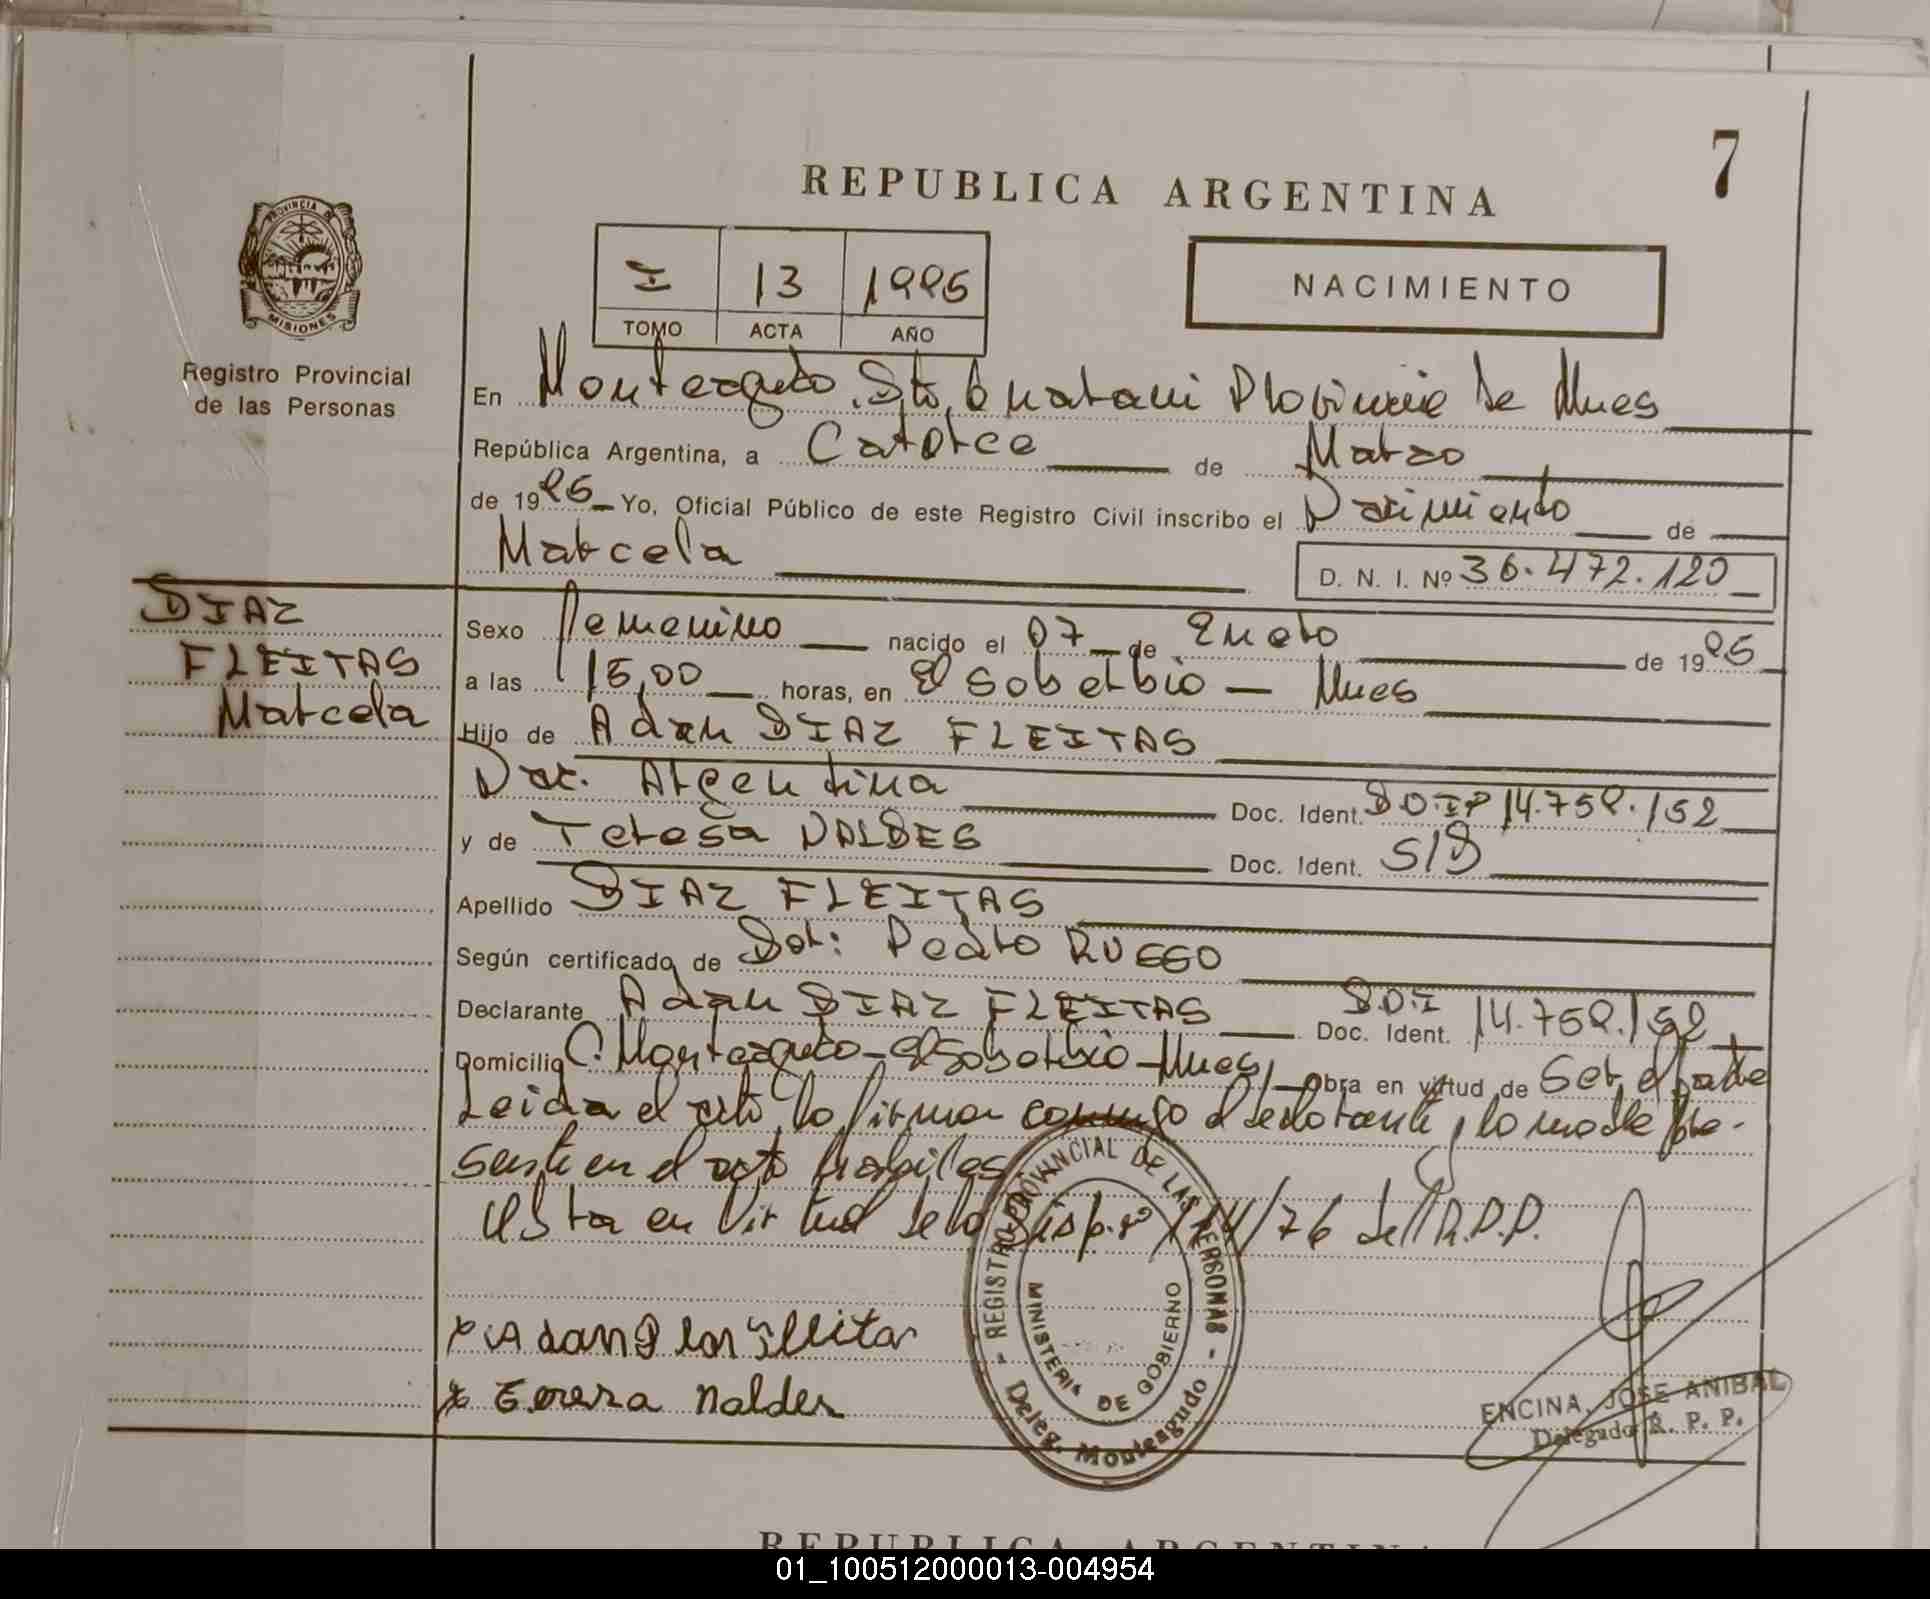 7
REPUBLICA ARGENTINA
PROVINCIA DE
MISIONES
I 13 1995
TOMO ACTA AÑO
NACIMIENTO
Registro Provincial
de las Personas
En Monteagudo. Gto. Guarani Provincia de Mnes
República Argentina, a Catorce de Marzo
de 1995 Yo, Oficial Público de este Registro Civil inscribo el Nacimiento de
Marcela
D. N. I. Nº 36.472.120
DIAZ
FLEITAS
Marcela
Sexo femenino nacido el 07 de Enero de 1995
a las 15,00 horas, en El Soberbio - Mnes
Hijo de Adan DIAZ FLEITAS
Nac. Argentina Doc. Ident. D.N.I Nº 14.759.152
y de Teresa NALDES Doc. Ident. S/D
Apellido DIAZ FLEITAS
Según certificado de Dot: Pedro RUSSO
Declarante Adan DIAZ FLEITAS Doc. Ident. D.N.I 14.759.152
Domicilio C. Monteagudo - El Soberbio - Mnes, obra en virtud de Ser el padre
Leida el acta la firman conmigo el declarante, la madre pre-
sente en el acto
en virtud de la Disp. Nº /76 del R.P.P.
REGISTRO PROVINCIAL DE LAS PERSONAS
MINISTERIO DE GOBIERNO
Deleg. Monteagudo
x Adan
x Teresa Naldes
ENCINA, JOSE ANIBAL
Delegado R. P. P.
REPUBLICA ARGENTINA
01_100512000013-004954